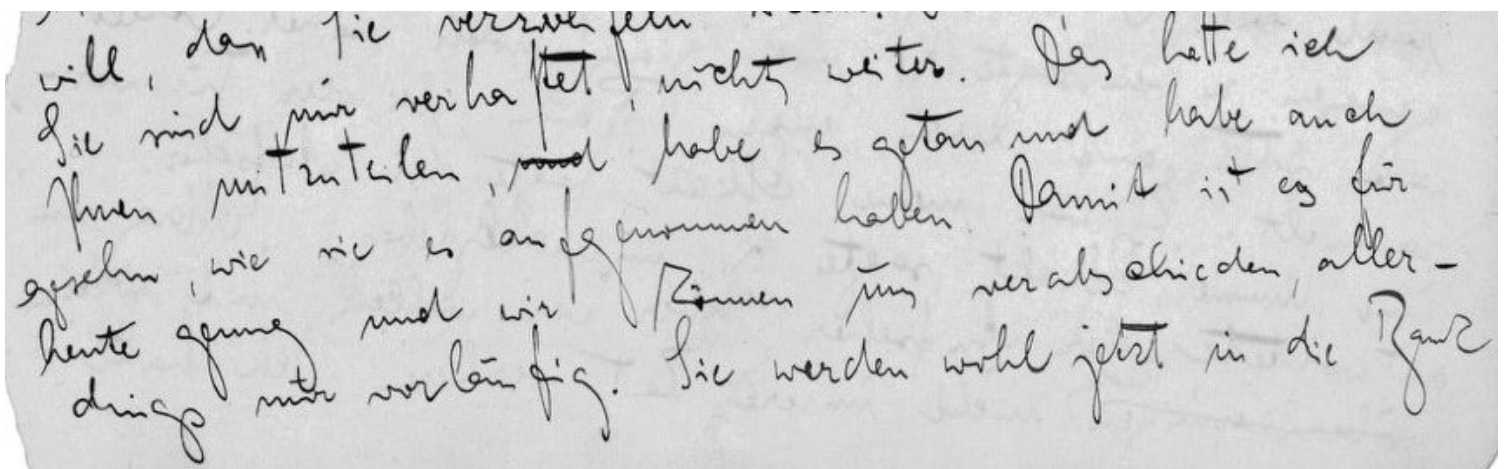 will, dass Sie verzweifeln
Sie sind nur verhaftet, nichts weiter. Das hatte ich
Ihnen mitzuteilen, und habe es getan und habe auch
gesehn, wie sie es aufgenommen haben. Damit ist es für
heute genug und wir können uns verabschieden, aller-
dings nur vorläufig. Sie werden wohl jetzt in die Bank